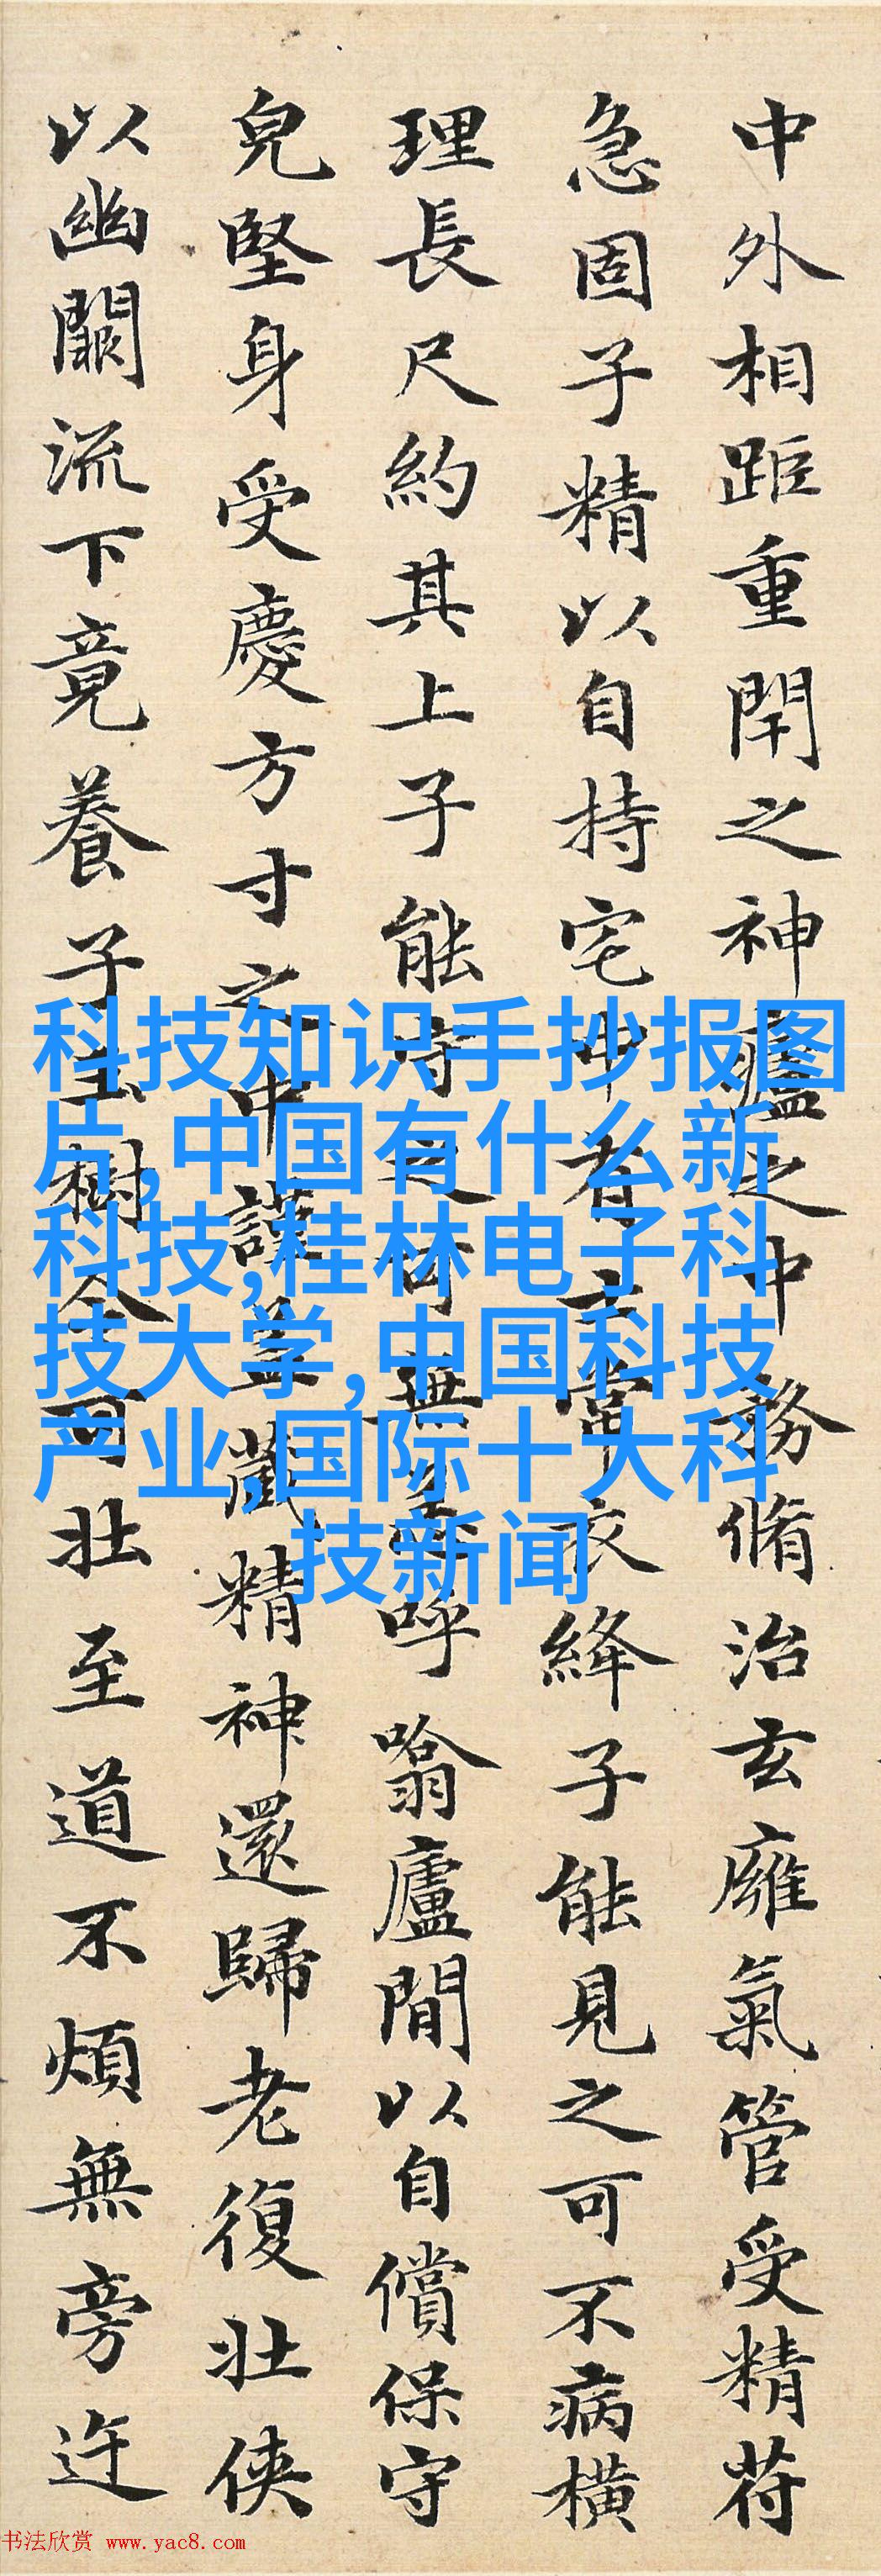 中外相距重閇之神廬之中務脩治玄廱氣管受精符
急固子精以自持宅中有士常衣絳子能見之可不病橫
理長尺約其上子能守之可無恙呼噏廬閒以自償保守
皃堅身受慶方寸之中謹蓋藏精神還歸老復壯俠
以幽闕流下竟養子玉樹令可壯至道不煩無旁迕
科技知识手抄报图
片,中国有什么新
科技,桂林电子科
技大学,中国科技
产业,国际十大科
技新闻
书法欣赏 www.yac8.com